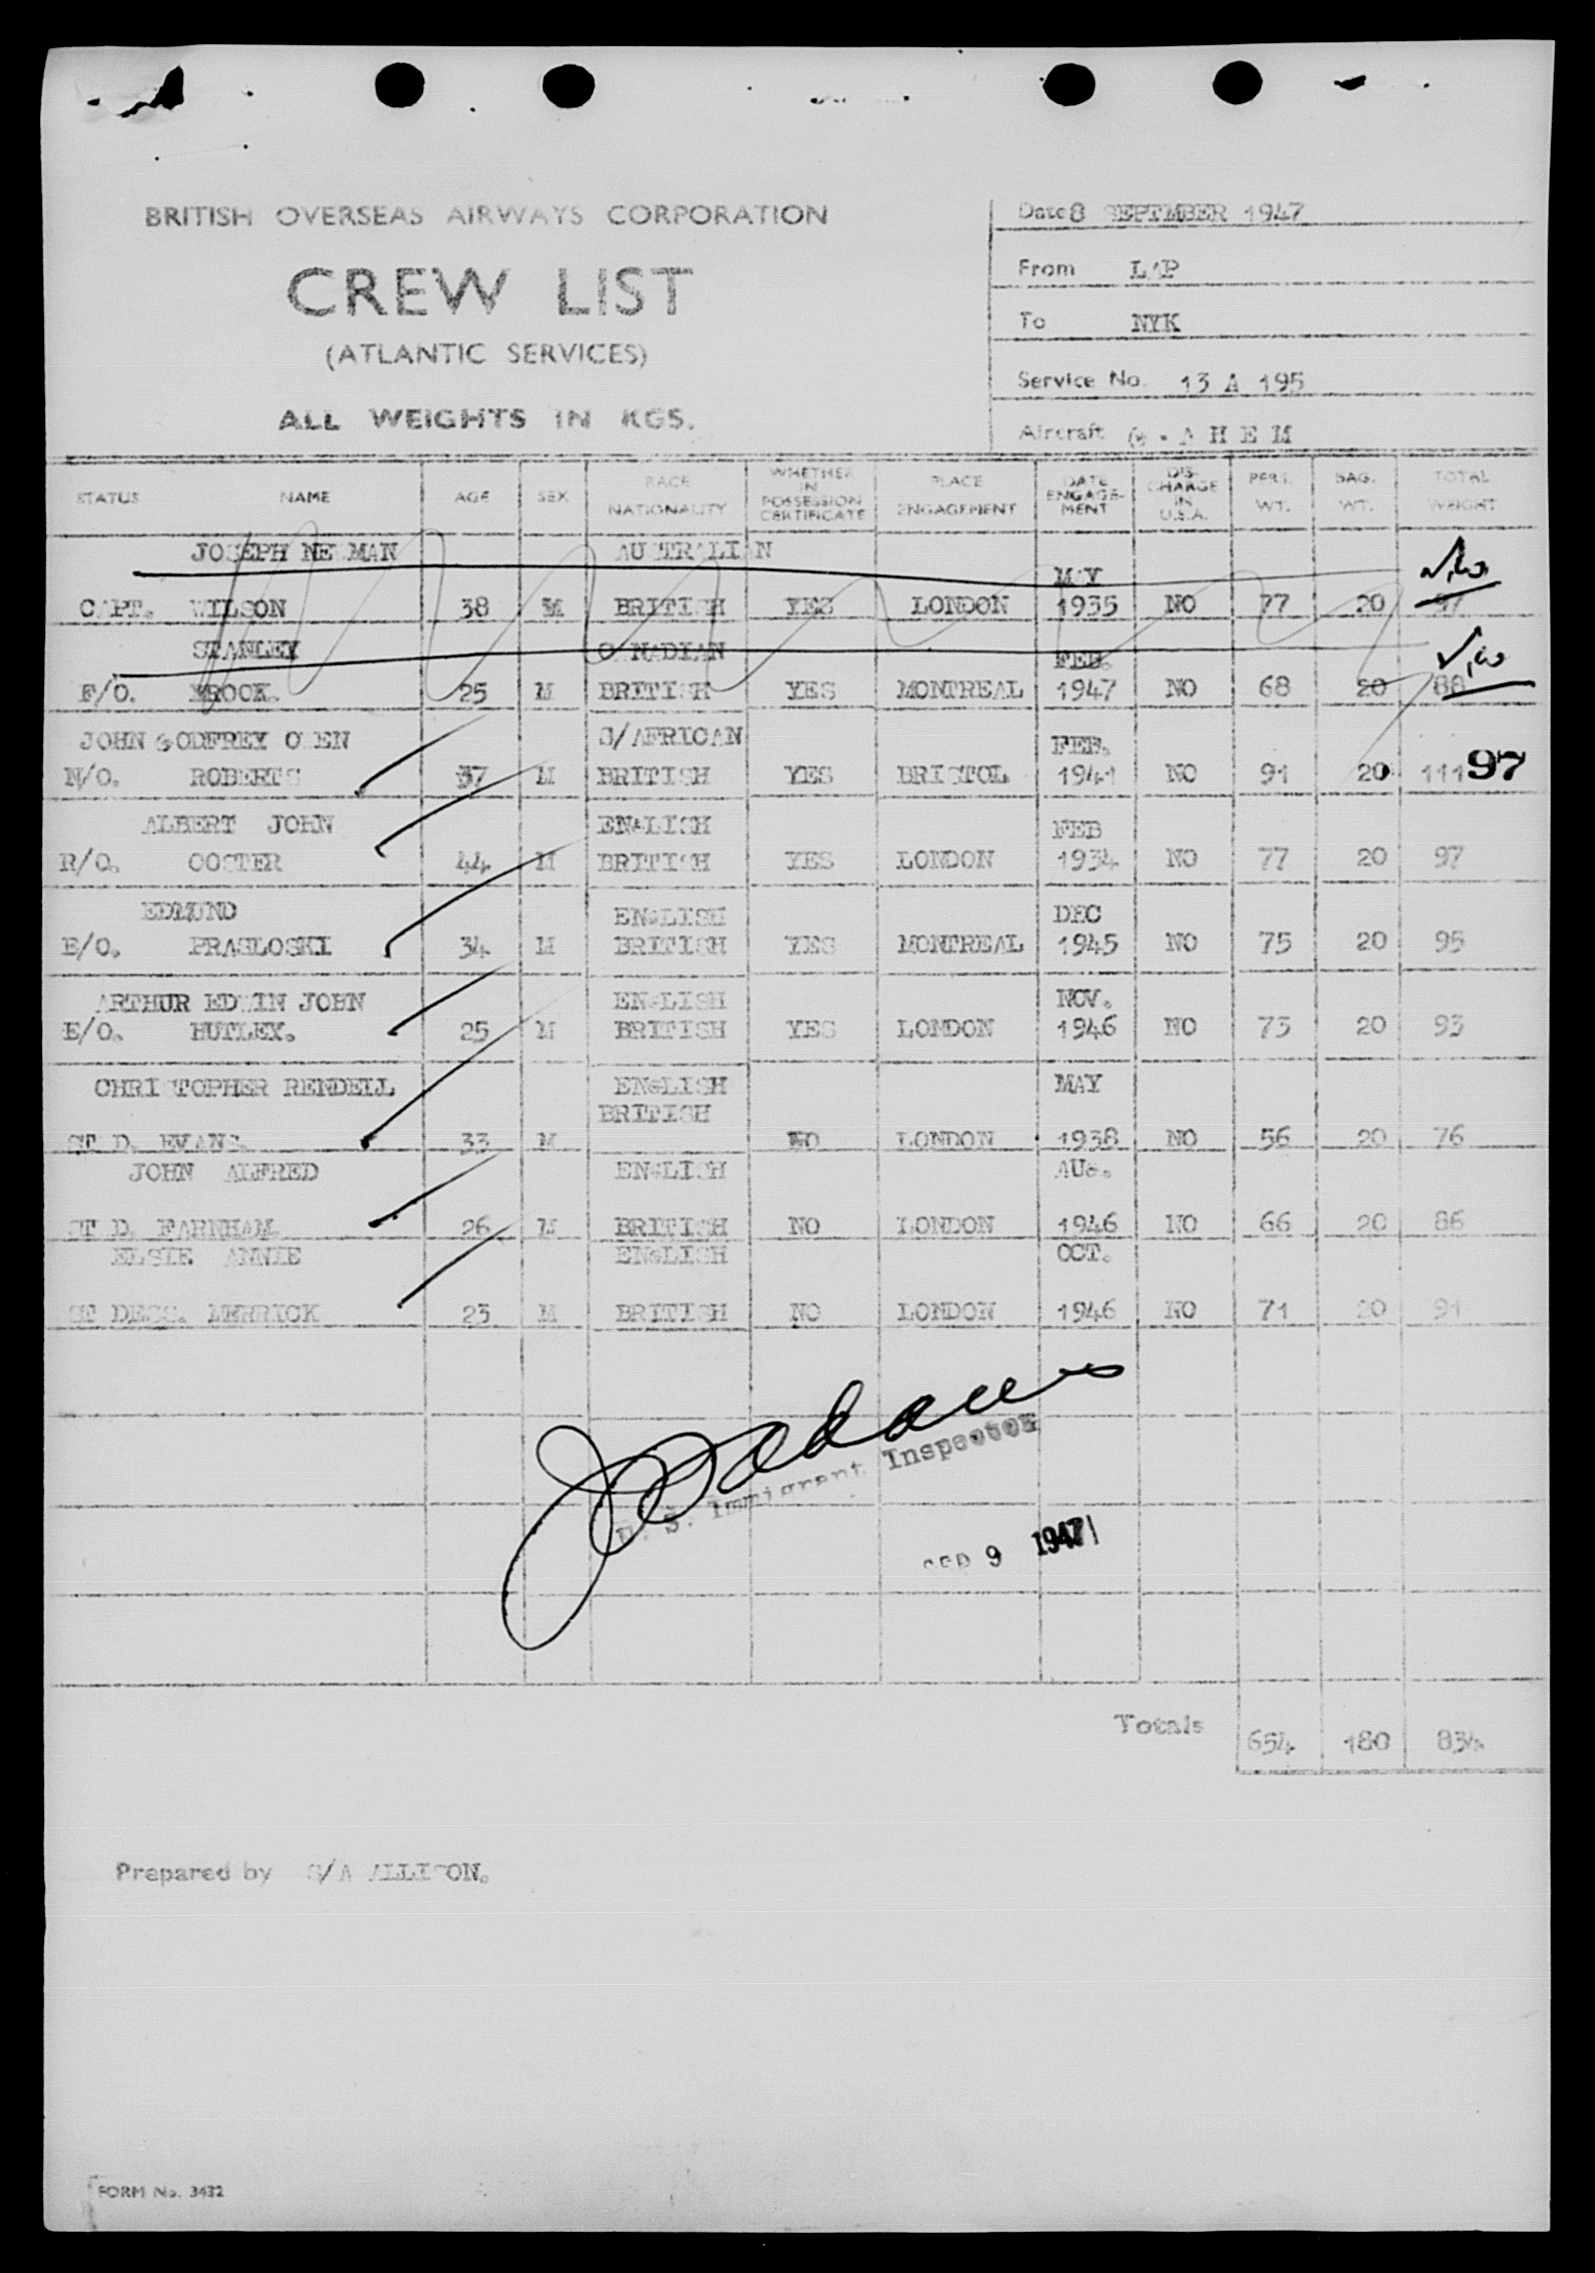 BRITISH OVERSEAS AIRWAYS CORPORATION
CREW LIST
(ATLANTIC SERVICES)
ALL WEIGHTS IN KGS.
Date 8 SEPTMBER 1947
From LAP
To NYK
Service No. 13 A 195
Aircraft G - A H E M
STATUS NAME AGE SEX RACE NATIONALITY WHETHER IN POSSESSION CERTIFICATE PLACE ENGAGEMENT DATE ENGAGE-MENT DIS-CHARGE IN U.S.A. PERS. WT. BAG. WT. TOTAL WEIGHT
JOSEPH NEWMAN AUSTRALIAN MAY
CAPT. WILSON 38 M BRITISH YES LONDON 1935 NO 77 20 97
STANLEY CANADIAN FEB.
F/O. 25 M BRITISH YES MONTREAL 1947 NO 68 20 88
JOHN GODFREY OWEN S/AFRICAN FEB.
N/O. ROBERTS 37 M BRITISH YES BRISTOL 1941 NO 91 20 111 97
ALBERT JOHN ENGLISH FEB
R/O. COSTER 44 M BRITISH YES LONDON 1934 NO 77 20 97
EDMUND ENGLISH DEC
E/O. PRASLOSKI 34 M BRITISH YES MONTREAL 1945 NO 75 20 95
ARTHUR EDWIN JOHN ENGLISH NOV.
E/O. HUTLEX. 25 M BRITISH YES LONDON 1946 NO 73 20 93
CHRISTOPHER RENDELL ENGLISH MAY
BRITISH
ST D. EVANS. 33 M NO LONDON 1938 NO 56 20 76
JOHN ALFRED ENGLISH AUG.
ST D. FARNHAM. 26 M BRITISH NO LONDON 1946 NO 66 20 86
ELSIE ANNIE ENGLISH OCT.
ST DESS. MERRICK 23 M BRITISH NO LONDON 1946 NO 71 20 91
U. S. Immigrant Inspector
SEP 9 1947
Totals 654 180 834
Prepared by S/A ALLISON.
FORM No. 3432